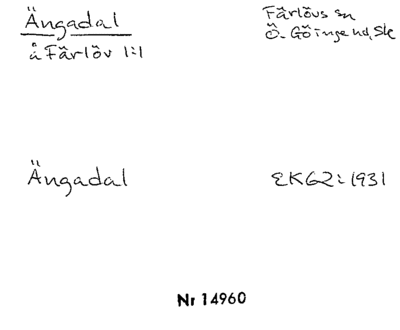 Ängadal
å Färlöv 1:1
Färlövs sn
Ö. Göinge hd, Sk
Ängadal
EKG2: 1931
Nr 14960